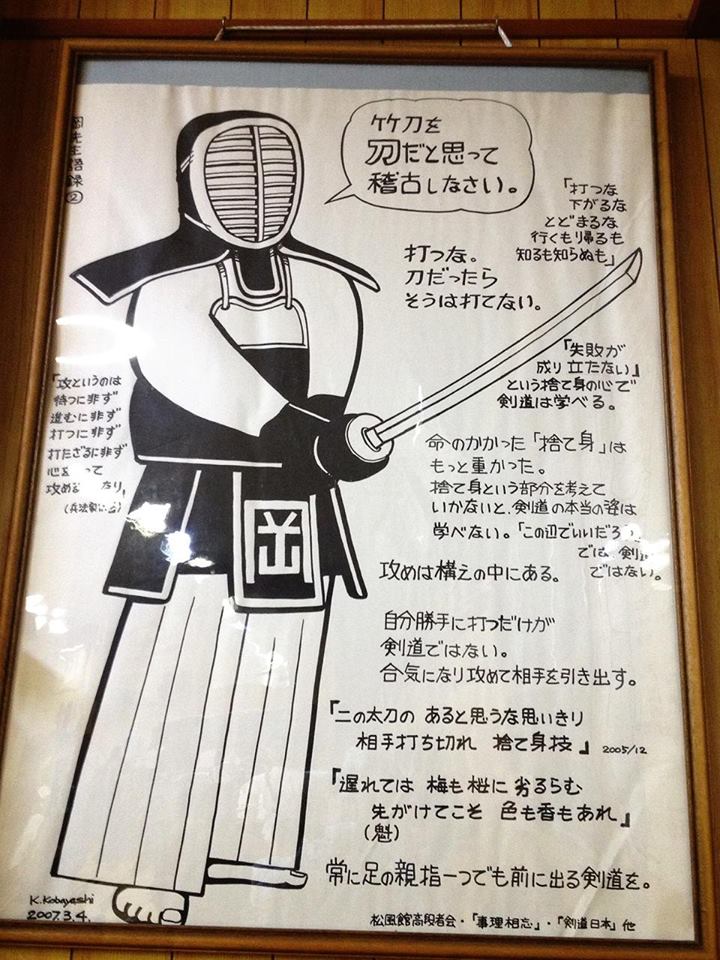 岡先生語録②
竹刀を
刀だと思って
稽古しなさい。
「打つな
下がるな
とどまるな
行くも帰るも
知るも知らぬも」
打つな。
刀だったら
そうは打てない。
「失敗が
成り立たない」
という捨て身の心で
剣道は学べる。
「攻というのは
待つに非ず
進むに非ず
打つに非ず
打たざるに非ず
心を って
攻める なり」
命のかかった「捨て身」は
もっと重かった。
捨て身という部分を考えて
いかないと、剣道の本当の姿は
学べない。「この辺でいいだろう」
では、剣
ではない。
攻めは構えの中にある。
岡
自分勝手に打つだけが
剣道ではない。
合気になり攻めて相手を引き出す。
『二の太刀の あると思うな思いきり
相手打ち切れ 捨て身技』 2005/12
『遅れては 梅も桜に 劣るらむ
先がけてこそ 色も香もあれ』
(魁)
常に足の親指一つでも前に出る剣道を。
K.Kobayashi
2007.3.4.
松風館高段者会・「事理相忘」・「剣道日本」他